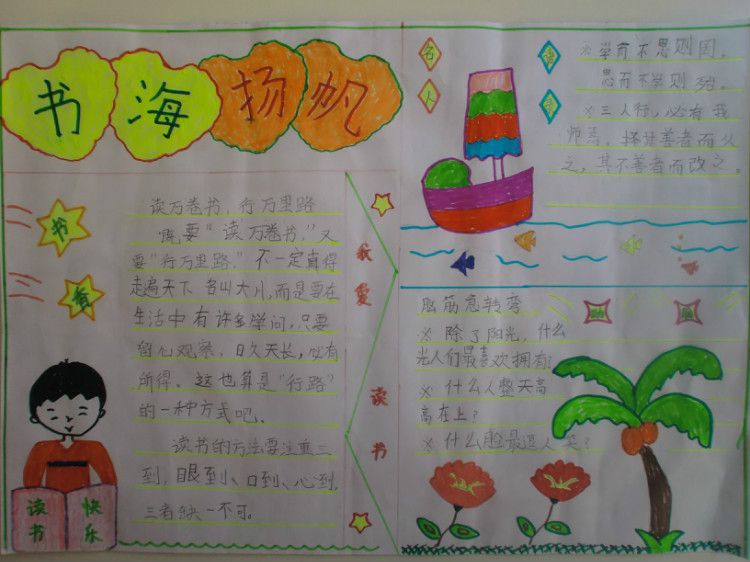 书海扬帆
名人
名言
※学而不思则罔,
思而不学则殆。
※三人行,必有我
师焉。择其善者而从
之,其不善者而改之。
书香
读万卷书,行万里路
既要“读万卷书,”又
要“行万里路,”不一定真得
走遍天下名山大川,而是要在
生活中有许多学问,只要
留心观察,日久天长,必有
所得。这也算是“行路”
的一种方式吧。
读书的方法要注重三
到,眼到、口到、心到,
三者缺一不可。
我爱读书
读书
快乐
脑筋急转弯
※除了阳光,什么
光人们最喜欢拥有?
※什么人整天高
高在上?
※什么脸最逗人笑?